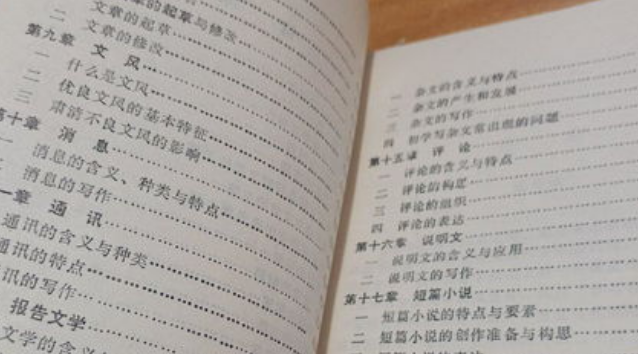 章的起草与修改
二 文章的起草
文章的修改
第九章 文风
一 什么是文风
二 优良文风的基本特征
三 肃清不良文风的影响
第十章 消息
一 消息的含义、种类与特点
二 消息的写作
一章 通讯
通讯的含义与种类
通讯的特点
讯的写作
报告文学
文学的含义
一 杂文的含义与特点
二 杂文的产生和发展
三 杂文的写作
四 初学写杂文常出现的问题
第十五章 评论
一 评论的含义与特点
二 评论的构思
三 评论的组织
四 评论的表达
第十六章 说明文
一 说明文的含义与应用
二 说明文的写作
第十七章 短篇小说
一 短篇小说的特点与要素
二 短篇小说的创作准备与构思